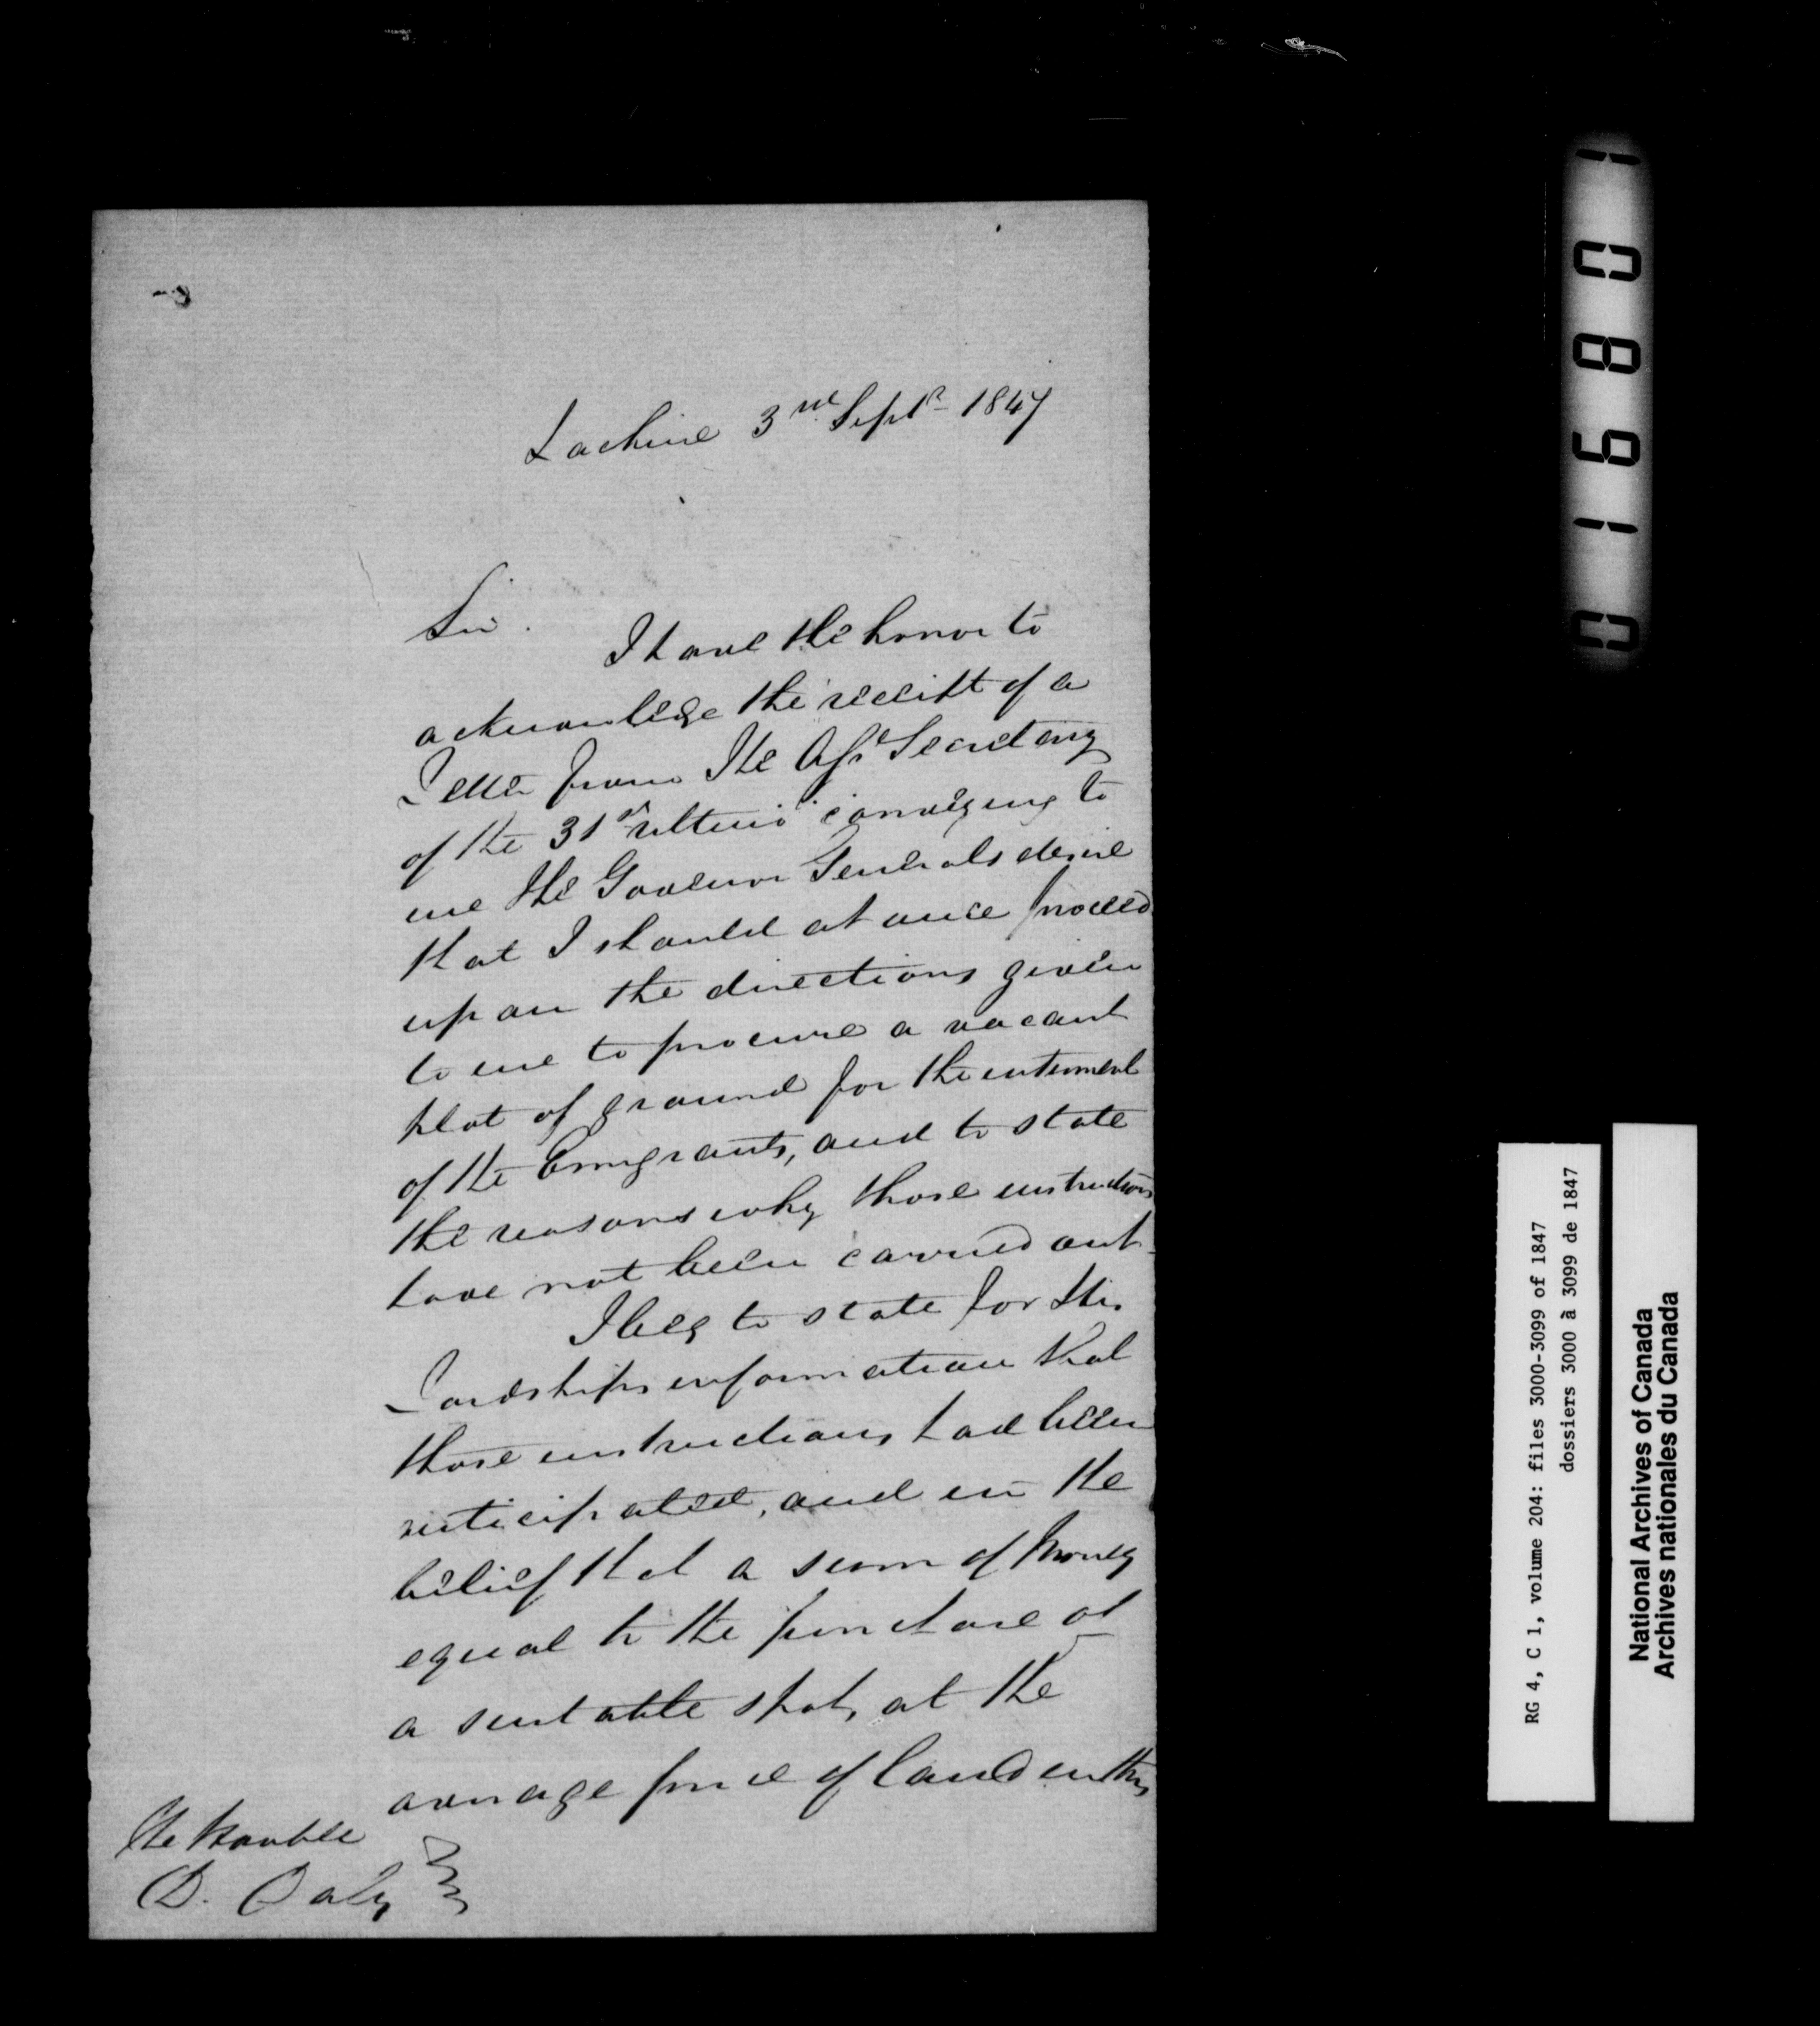 Lachine 3rd Septr 1847
Sir.
I have the honor to
acknowledge the receipt of a
Letter from The Asst Secretary
of the 31st ultimo conveying to
me the Governor Generals desire
that I should at once proceed
upon the directions given
to me to procure a vacant
plot of ground for the interment
of the Emigrants, and to state
the reasons why those instructions
have not been carried out.
I beg to state for His
Lordships information that
those instructions had been
anticipated, and in the
belief that a sum of money
equal to the purchase of
a suitable spot, at the
average price of land in this
The Honble
D. Daly
016801
RG 4, C 1, volume 204: files 3000-3099 of 1847
dossiers 3000 à 3099 de 1847
National Archives of Canada
Archives nationales du Canada